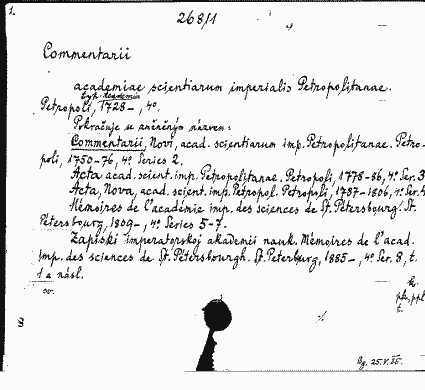 1.
268/1
Commentarii
academiae scientiarum imperialis Petropolitanae.
Typ. Academiae
Petropoli, 1728-, 4°.
Pokračuje se změněným názvem:
Commentarii, Novi, acad. scientiarum imp. Petropolitanae. Petro-
poli, 1750-76, 4°. Series 2.
Acta acad. scient. imp. Petropolitanae. Petropoli, 1778-86, 4°. Ser. 3
Acta, Nova, acad. scient. imp. Petropol. Petropoli, 1787-1806, 4°. Ser. 4
Mémoires de l'académie imp. des sciences de St. Pétersbourg. St.
Pétersbourg, 1809-, 4°. Series 5-7.
Zapiski imperatorskoj akademii nauk. Mémoires de l'acad.
imp. des sciences de St. Pétersbourgh. St. Peterburg, 1885-, 4°. Ser. 8, t.
1 a násl.
8
t.
25.V.